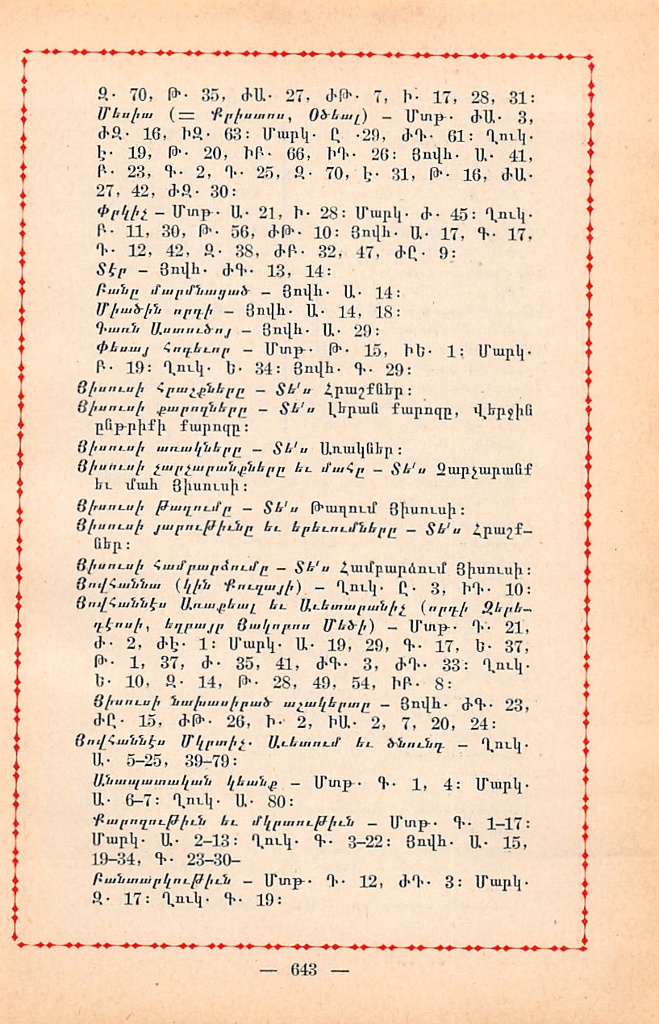 Զ. 70, Թ. 35, ԺԱ. 27, ԺԹ. 7, Ի. 17, 28, 31:
Մեսիա (= Քրիստոս, Օծեալ) – Մտթ. ԺԱ. 3,
ԺԶ. 16, ԻԶ. 63: Մարկ. Ը .29, ԺԴ. 61: Ղուկ.
Է. 19, Թ. 20, ԻԲ. 66, ԻԴ. 26: Յովհ. Ա. 41,
Բ. 23, Գ. 2, Դ. 25, Զ. 70, Է. 31, Թ. 16, ԺԱ.
27, 42, ԺԶ. 30:
Փրկիչ – Մտթ. Ա. 21, Ի. 28: Մարկ. Ժ. 45: Ղուկ.
Բ. 11, 30, Թ. 56, ԺԹ. 10: Յովհ. Ա. 17, Գ. 17,
Դ. 12, 42, Զ. 38, ԺԲ. 32, 47, ԺԸ. 9:
Տէր – Յովհ. ԺԳ. 13, 14:
Բանը մարմնացած – Յովհ. Ա. 14:
Միածին որդի – Յովհ. Ա. 14, 18:
Գառն Աստուծոյ – Յովհ. Ա. 29:
Փեսայ Հոգեւոր – Մտթ. Թ. 15, ԻԵ. 1: Մարկ.
Բ. 19: Ղուկ. Ե. 34: Յովհ. Գ. 29:
Յիսուսի Հրաշքները – Տե՛ս Հրաշքներ:
Յիսուսի քարոզները – Տե՛ս Լերան քարոզը, Վերջին
ընթրիքի քարոզը:
Յիսուսի առակները – Տե՛ս Առակներ:
Յիսուսի չարչարանքները եւ մահը – Տե՛ս Չարչարանք
եւ մահ Յիսուսի:
Յիսուսի Թաղումը – Տե՛ս Թաղում Յիսուսի:
Յիսուսի յարութիւնը եւ երեւումները – Տե՛ս Հրաշք–
ներ:
Յիսուսի Համբարձումը – Տե՛ս Համբարձում Յիսուսի:
Յովհաննա (կին Քուզայի) – Ղուկ. Ը. 3, ԻԴ. 10:
Յովհաննէս Առաքեալ եւ Աւետարանիչ (որդի Զեբե–
դէոսի, եղբայր Յակոբոս Մեծի) – Մտթ. Դ. 21,
Ժ. 2, ԺԷ. 1: Մարկ. Ա. 19, 29, Գ. 17, Ե. 37,
Թ. 1, 37, Ժ. 35, 41, ԺԳ. 3, ԺԴ. 33: Ղուկ.
Ե. 10, Զ. 14, Թ. 28, 49, 54, ԻԲ. 8:
Յիսուսի նախասիրած աշակերտը – Յովհ. ԺԳ. 23,
ԺԸ. 15, ԺԹ. 26, Ի. 2, ԻԱ. 2, 7, 20, 24:
Յովհաննէս Մկրտիչ. Աւետում եւ ծնունդ – Ղուկ.
Ա. 5–25, 39–79:
Անապատական կեանք – Մտթ. Գ. 1, 4: Մարկ.
Ա. 6–7: Ղուկ. Ա. 80:
Քարոզութիւն եւ մկրտութիւն – Մտթ. Գ. 1–17:
Մարկ. Ա. 2–13: Ղուկ. Գ. 3–22: Յովհ. Ա. 15,
19–34, Գ. 23–30–
Բանտարկութիւն – Մտթ. Դ. 12, ԺԴ. 3: Մարկ.
Զ. 17: Ղուկ. Գ. 19:
— 643 —